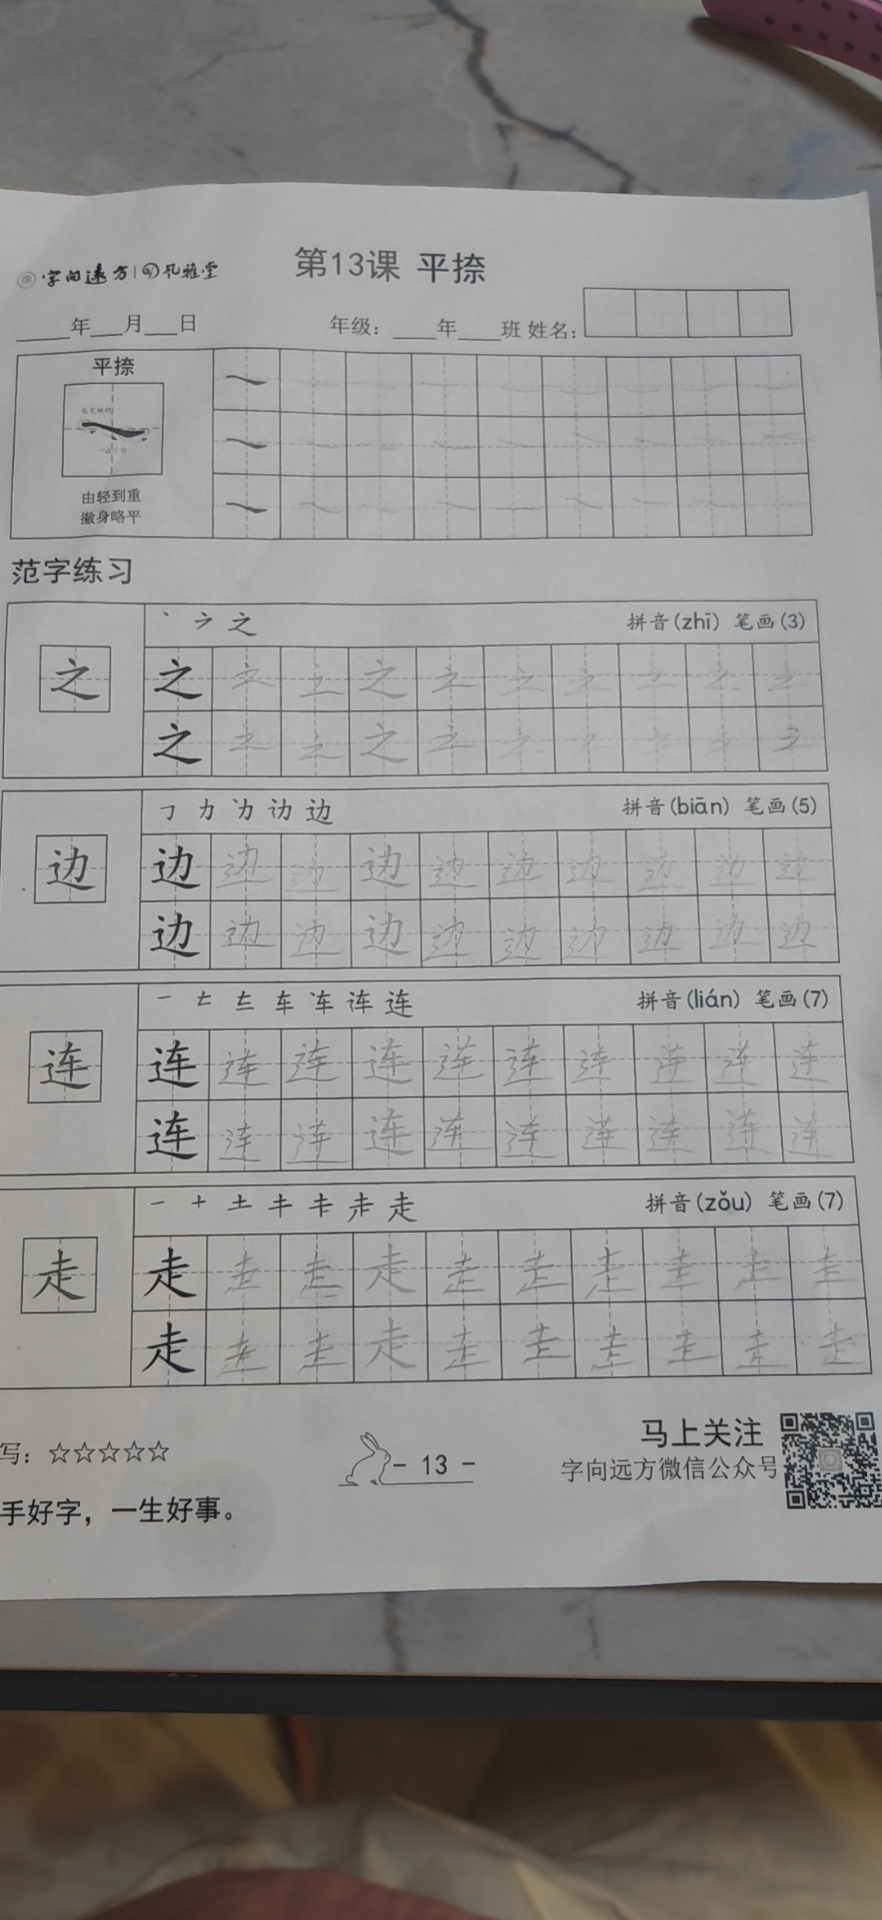 字向远方 风雅堂
第13课 平捺
年 月 日 年级： 年 班 姓名：
平捺
由轻到重
撇身略平
范字练习
丶 ㇇ 之 拼音(zhī) 笔画(3)
之 之 之 之 之 之 之 之 之 之 之
之 之 之 之 之 之 之 之 之 之
㇆ 力 边 拼音(biān) 笔画(5)
边 边 边 边 边 边 边 边 边 边 边
边 边 边 边 边 边 边 边 边 边
一 车 连 拼音(lián) 笔画(7)
连 连 连 连 连 连 连 连 连 连 连
连 连 连 连 连 连 连 连 连 连
一 十 土 走 走 拼音(zǒu) 笔画(7)
走 走 走 走 走 走 走 走 走 走 走
走 走 走 走 走 走 走 走 走 走
写：☆☆☆☆☆
手好字，一生好事。
- 13 -
马上关注
字向远方微信公众号